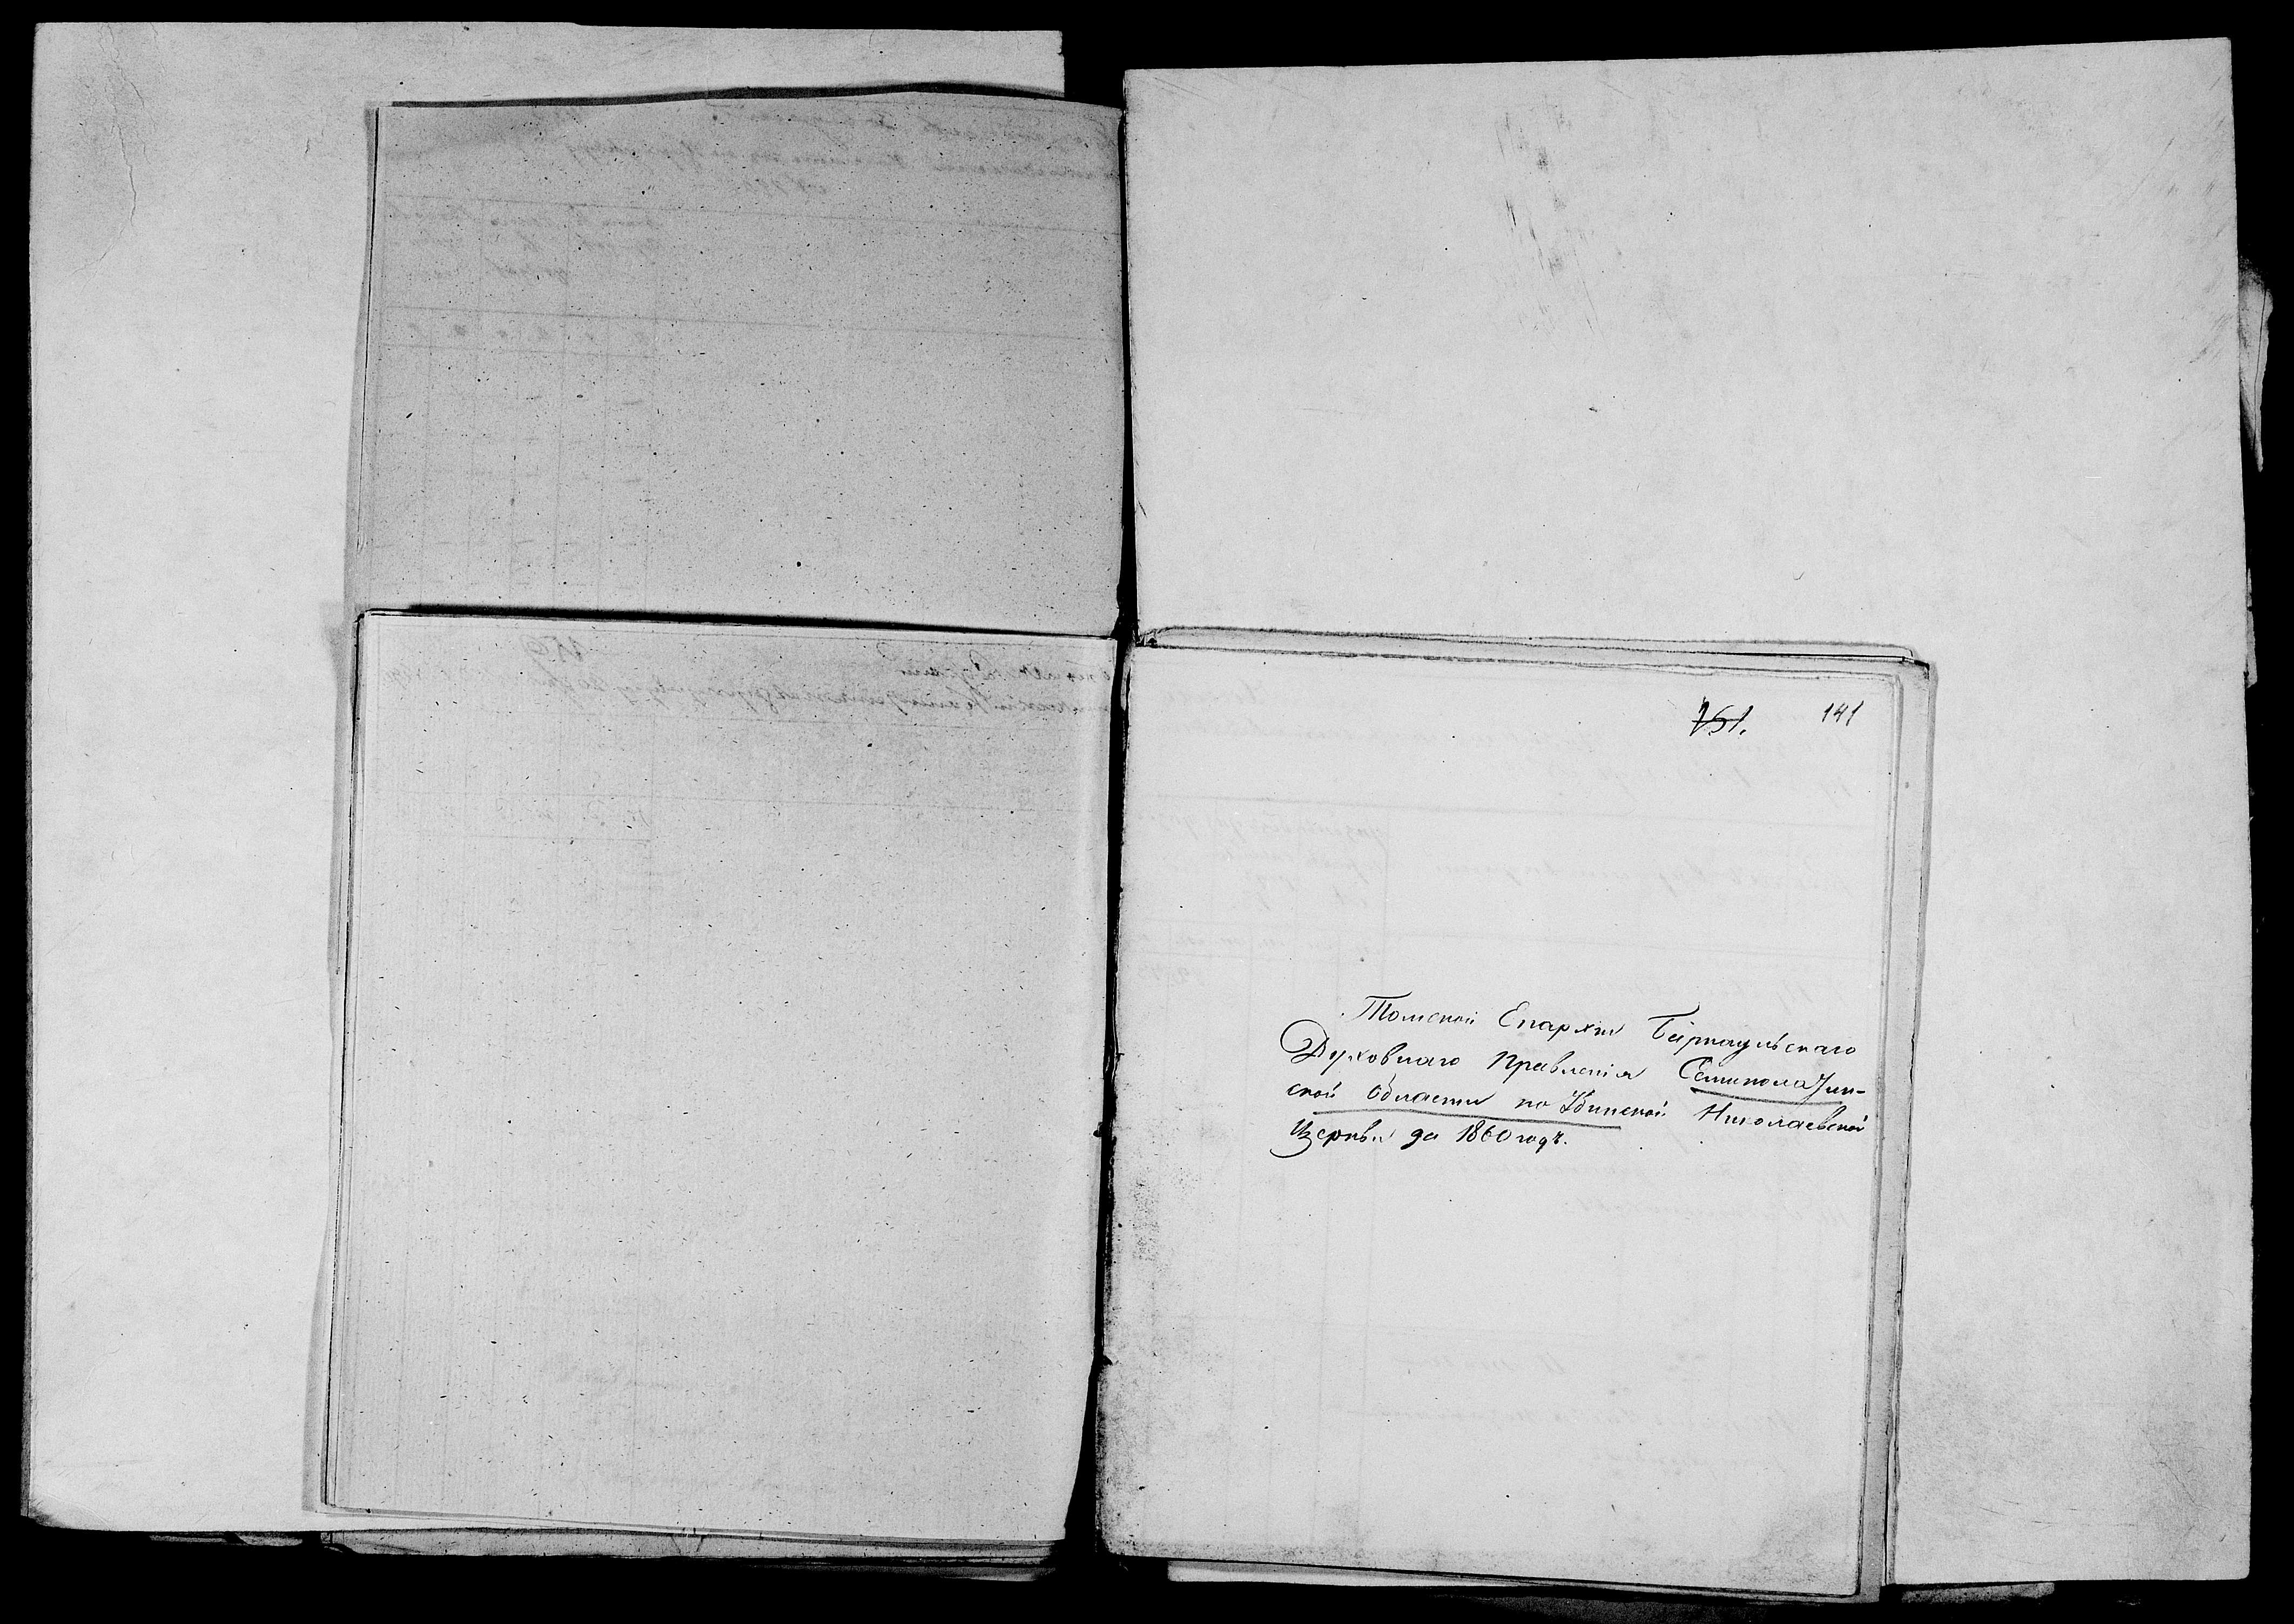 151. 141
Томской Епархіи Барнаульскаго
Духовнаго Правленія Семиполатин-
ской области по Убинской Николаевской
Церкви за 1860 годъ.